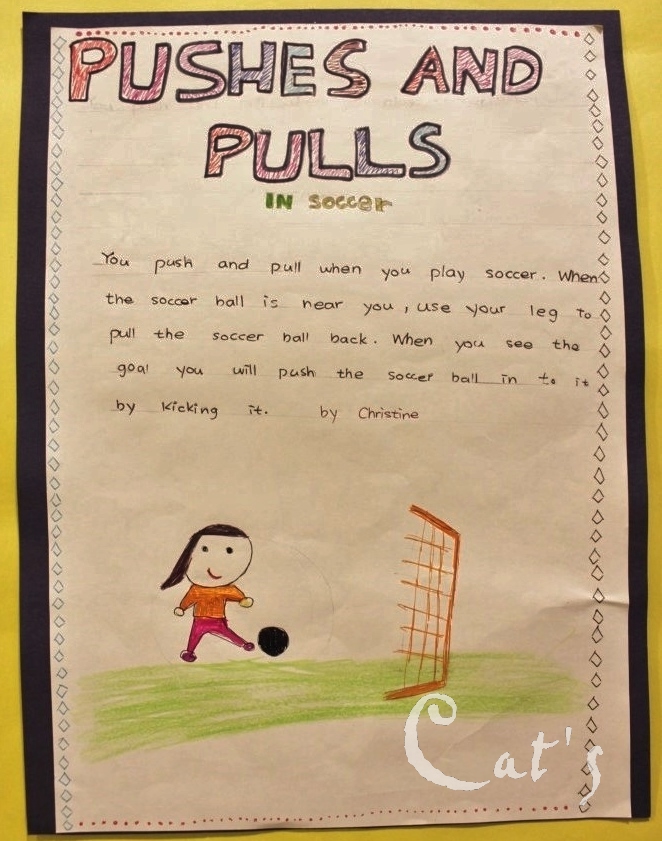 PUSHES AND
PULLS
IN SOCCER
You push and pull when you play soccer. When
the soccer ball is near you, use your leg to
pull the soccer ball back. When you see the
goal you will push the soccer ball in to it
by kicking it. by Christine
Cat's